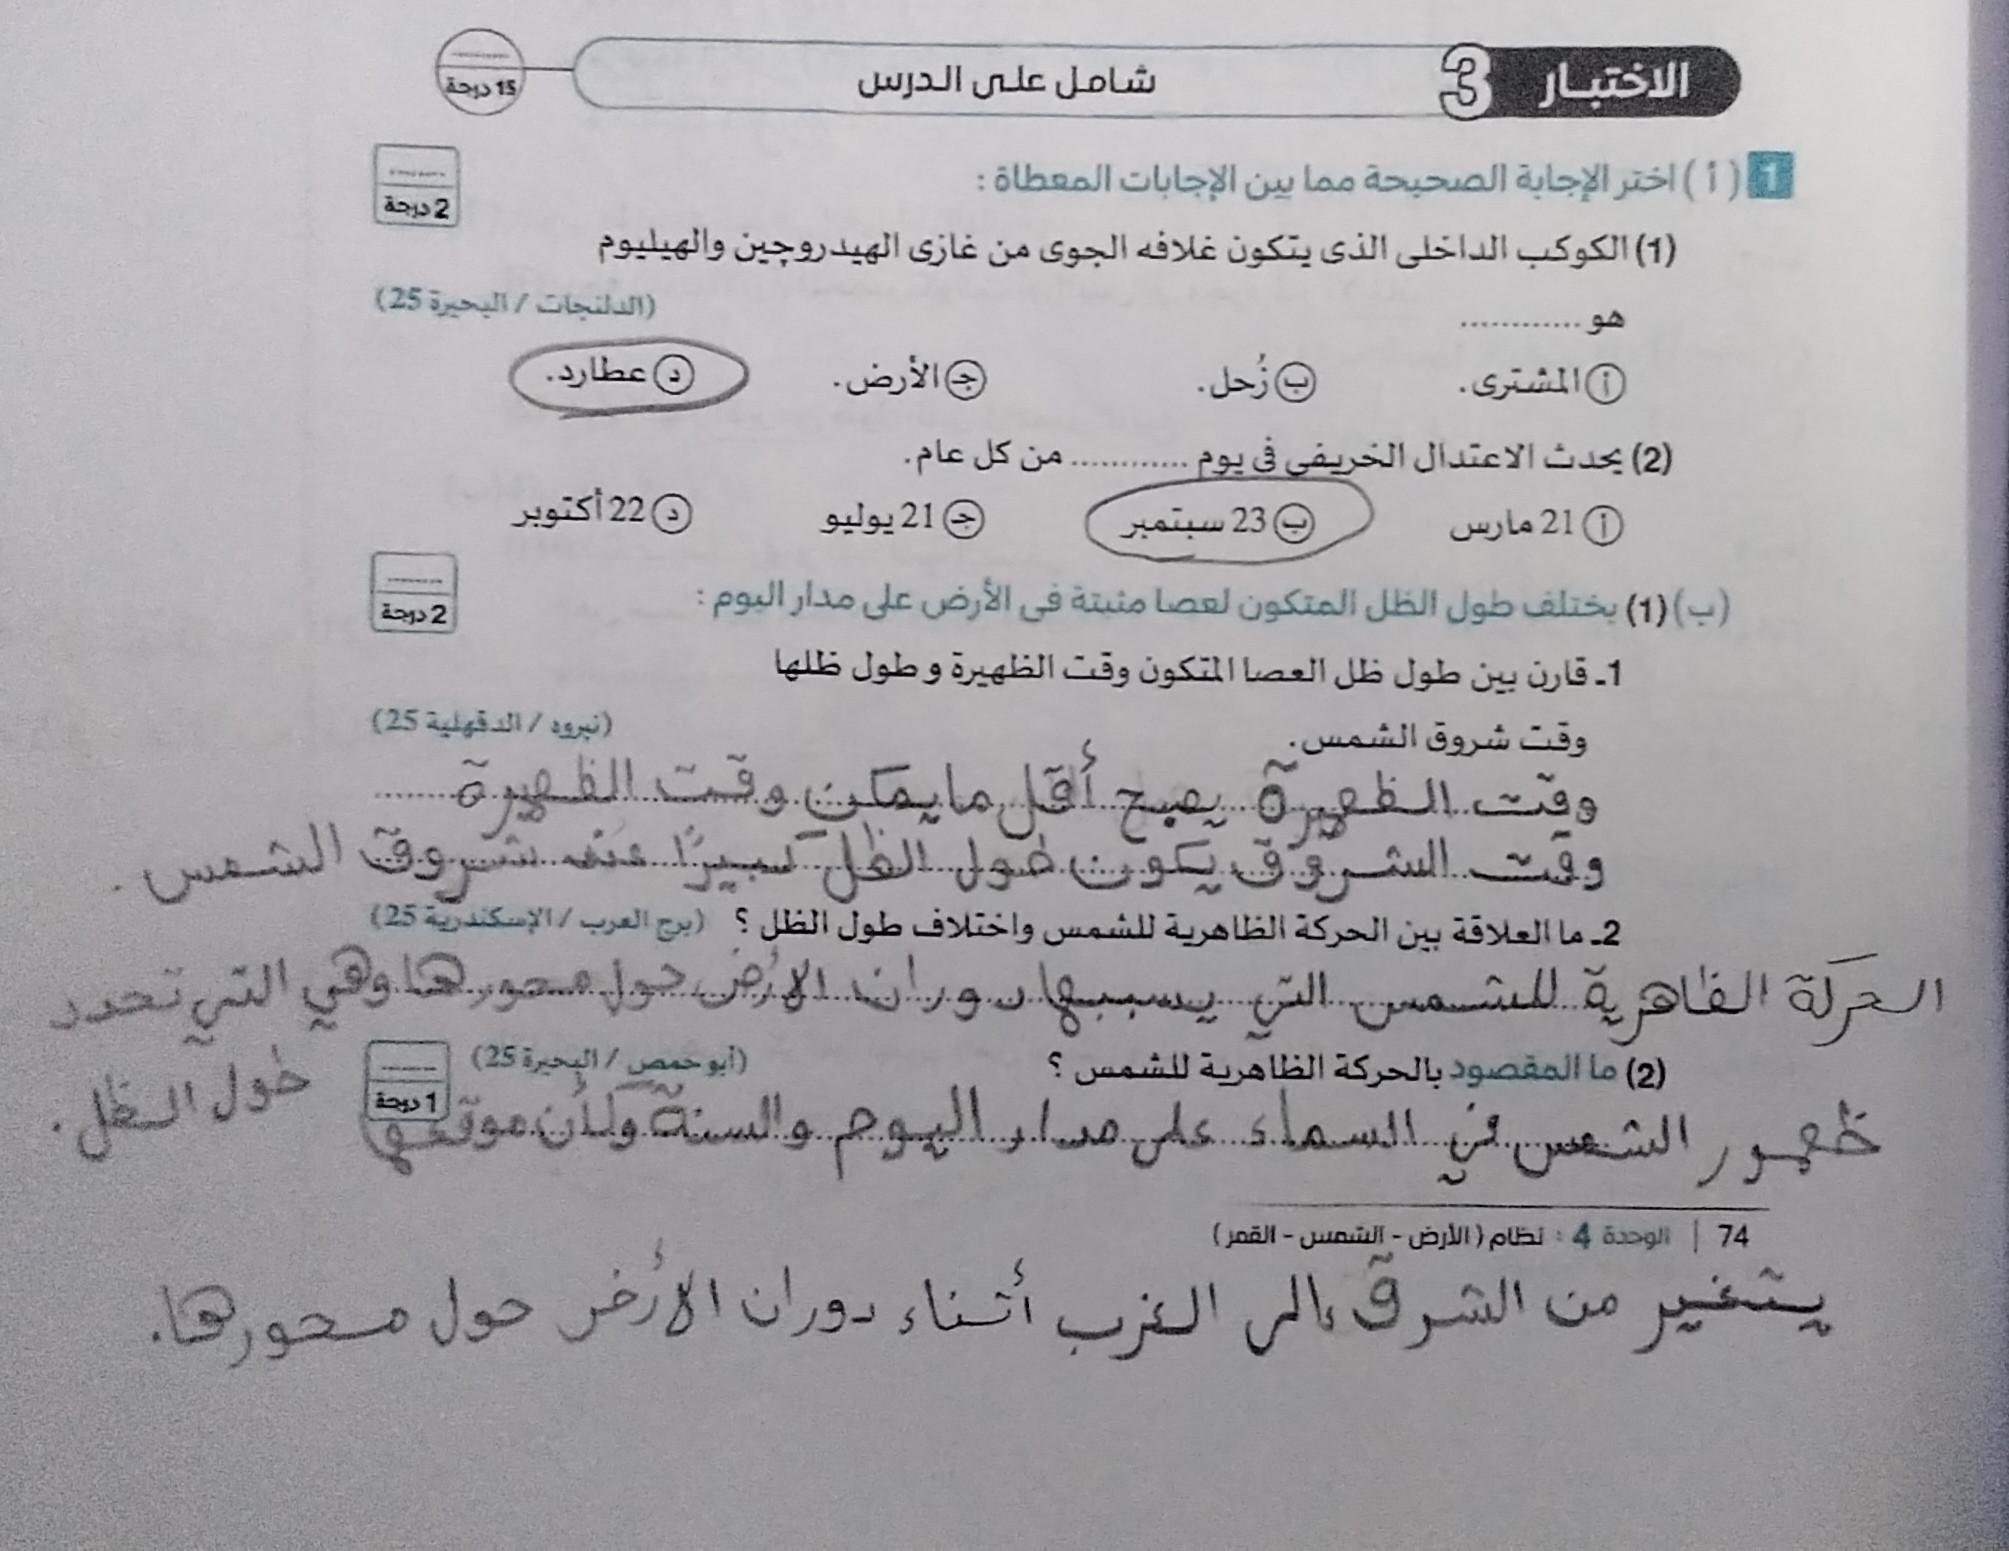 الاختبار 3 شامل على الدرس
15 درجة
1 (أ) اختر الإجابة الصحيحة مما بين الإجابات المعطاة :
2 درجة
(1) الكوكب الداخلى الذى يتكون غلافه الجوى من غازى الهيدروچين والهيليوم
هو ............ (الدلنجات / البحيرة 25)
أ المشترى. ب زُحل. جـ الأرض. د عطارد.
(2) يحدث الاعتدال الخريفى فى يوم ............ من كل عام.
أ 21 مارس ب 23 سبتمبر جـ 21 يوليو د 22 أكتوبر
(ب) (1) يختلف طول الظل المتكون لعصا مثبتة فى الأرض على مدار اليوم :
2 درجة
1ـ قارن بين طول ظل العصا المتكون وقت الظهيرة و طول ظلها
وقت شروق الشمس. (نبروه / الدقهلية 25)
وقت الظهيرة يصبح أقل ما يمكن وقت الظهيرة
وقت الشروق يكون طول الظل كبيرًا عند شروق الشمس .
2ـ ما العلاقة بين الحركة الظاهرية للشمس واختلاف طول الظل ؟ (برج العرب / الإسكندرية 25)
الحركة الظاهرية للشمس التي يسببها دوران الأرض حول محورها وهي التي تحدد
طول الظل .
(2) ما المقصود بالحركة الظاهرية للشمس ؟ (أبو حمص / البحيرة 25)
1 درجة
ظهور الشمس في السماء على مدار اليوم والسنة وكأن موقعها
74 | الوحدة 4 : نظام (الأرض - الشمس - القمر)
يتغير من الشرق إلى الغرب أثناء دوران الأرض حول محورها.